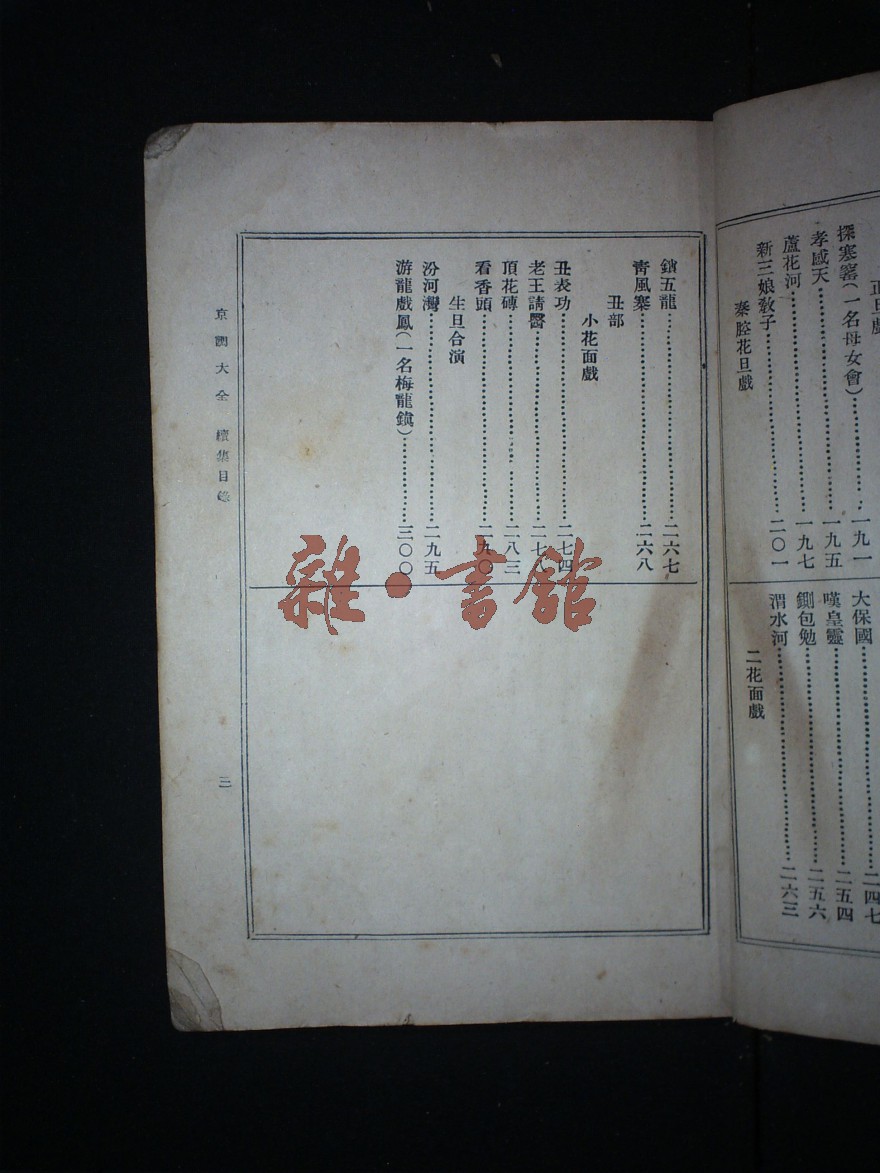 正旦戲
探寒窰(一名母女會)⋯⋯一九一
孝感天⋯⋯一九五
蘆花河⋯⋯一九七
新三娘敎子⋯⋯二〇一
秦腔花旦戲
大保國⋯⋯二四七
嘆皇靈⋯⋯二五四
鍘包勉⋯⋯二五六
渭水河⋯⋯二六三
二花面戲
鎖五龍⋯⋯二六七
靑風寨⋯⋯二六八
丑部
小花面戲
丑表功⋯⋯二七四
老王請醫⋯⋯二七
頂花磚⋯⋯二八三
看香頭⋯⋯二九〇
生旦合演
汾河灣⋯⋯二九五
游龍戲鳳(一名梅龍鎭)⋯⋯三〇〇
京調大全 續集目錄
三
雜·書館